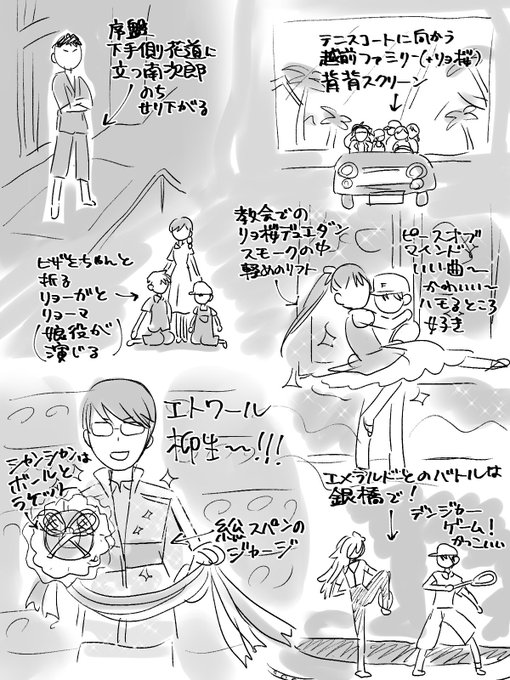 序盤
下手側花道に
立つ南次郎
のち
せり下がる
テニスコートに向かう
越前ファミリー(+リョ桜)
背背スクリーン
教会での
リョ桜デュエダン
スモークの中
軽めのリフト
ピースオブ
マインド
いい曲〜
かわいい〜
ハモるところ
好き
ヒザをちゃんと
折る
リョーガと
リョーマ
(娘役が
演じる)
エトワール
柳生〜!!!
シャンシャンは
ボールと
ラケット
総スパンの
ジャージ
エメラルドとのバトルは
銀橋で!
デンジャー
ゲーム!
かっこいい